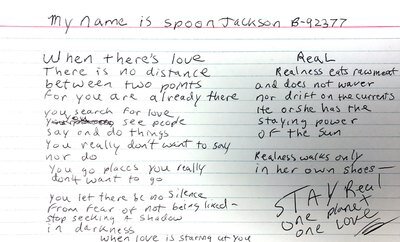 My name is spoon Jackson B-92377
When there's love
There is no distance
between two points
for you are already there
you search for love
see people
say and do things
You really don't want to say
nor do
You go places you really
don't want to go
you let there be no silence
From fear of not being liked-
stop seeking a shadow
in darkness
When love is staring at you
Real
Realness eats raw meat
and does not waver
nor drift on the currents
He or she has the
staying power
of the sun
Realness walks only
in her own shoes-
STAY Real
one planet
one Love